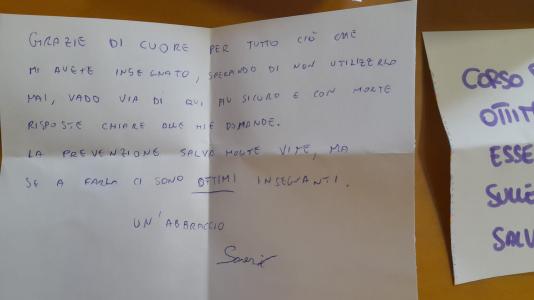 GRAZIE DI CUORE PER TUTTO CIÒ CHE
MI AVETE INSEGNATO, SPERANDO DI NON UTILIZZARLO
MAI, VADO VIA DI QUI PIÙ SICURO E CON MOLTE
RISPOSTE CHIARE ALLE MIE DOMANDE.
LA PREVENZIONE SALVA MOLTE VITE, MA
SE A FARLA CI SONO OTTIMI INSEGNANTI.
UN'ABBRACCIO
CORSO
OTTIM
ESSE
SULLE
SALV